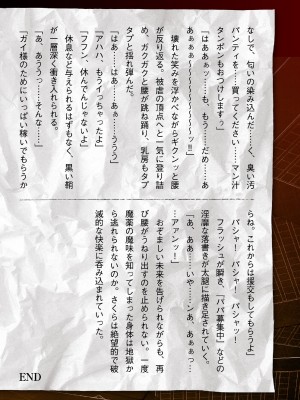 なしで、匂いの染み込んだ……く、臭い汚
パンティを……買ってください……マン汁
タンポンもおつけしますぅ」
「はああぁッ……も、もう……だめ……あ
あぁぁぁ〜〜〜〜〜〜〜〜〜ッ!!」
壊れた笑みを浮かべながらギクンッと腰
が反り返る。被虐の頂点へと一気に登り詰
め、ガクガクと腰が跳ね踊り、乳房もタプ
タプと揺れ弾んだ。
「はぁ……はぁ……あぁ……ううう」
「アハハ、もうイっちゃったよ」
「フフン、休んでんじゃないよ」
休息など与えられるはずもなく、黒い鞘
が一層深く衝き入れられる。
「あ、あううっ……そんな……」
「ガイ様のためにいっぱい稼いでもらうか
らね。これからは援交もしてもらうよ」
パシャー！　パシャー！　パシャッ！
フラッシュが瞬き、「パパ募集中」などの
淫靡な落書きが太腿に描き足されていく。
「あ、ああ……いや……ンあ、あぁぁっ…
…アァンッ！」
おぞましい未来を告げられながらも、再
び腰がうねり出すのを止められない。一度
魔薬の魔味を知ってしまった身体は地獄か
ら逃れられないのか。さくらは絶望的で破
滅的な快楽に呑み込まれていった。
END